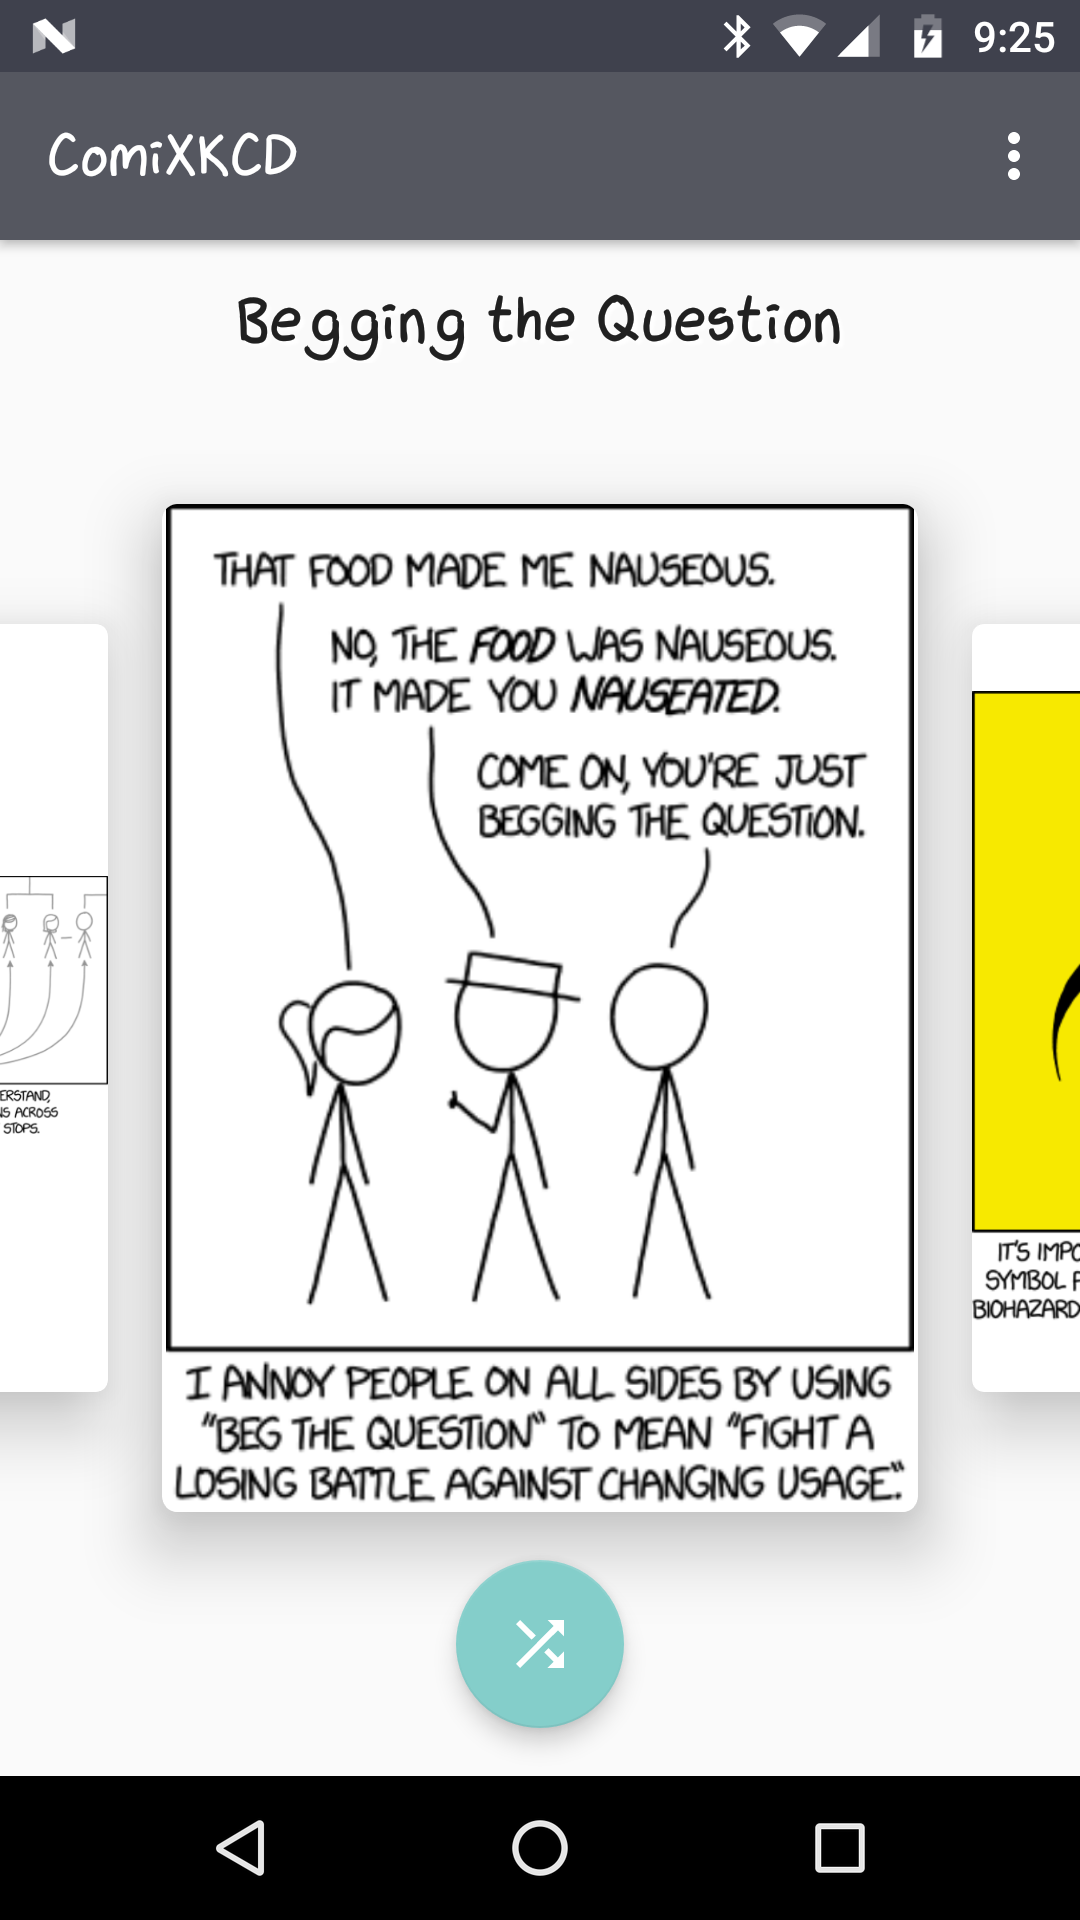 9:25
ComiXKCD
Begging the Question
THAT FOOD MADE ME NAUSEOUS.
NO, THE FOOD WAS NAUSEOUS.
IT MADE YOU NAUSEATED.
COME ON, YOU'RE JUST
BEGGING THE QUESTION.
I ANNOY PEOPLE ON ALL SIDES BY USING
"BEG THE QUESTION" TO MEAN "FIGHT A
LOSING BATTLE AGAINST CHANGING USAGE."
ERSTAND,
NS ACROSS
STOPS.
IT'S IMPO
SYMBOL F
BIOHAZARD